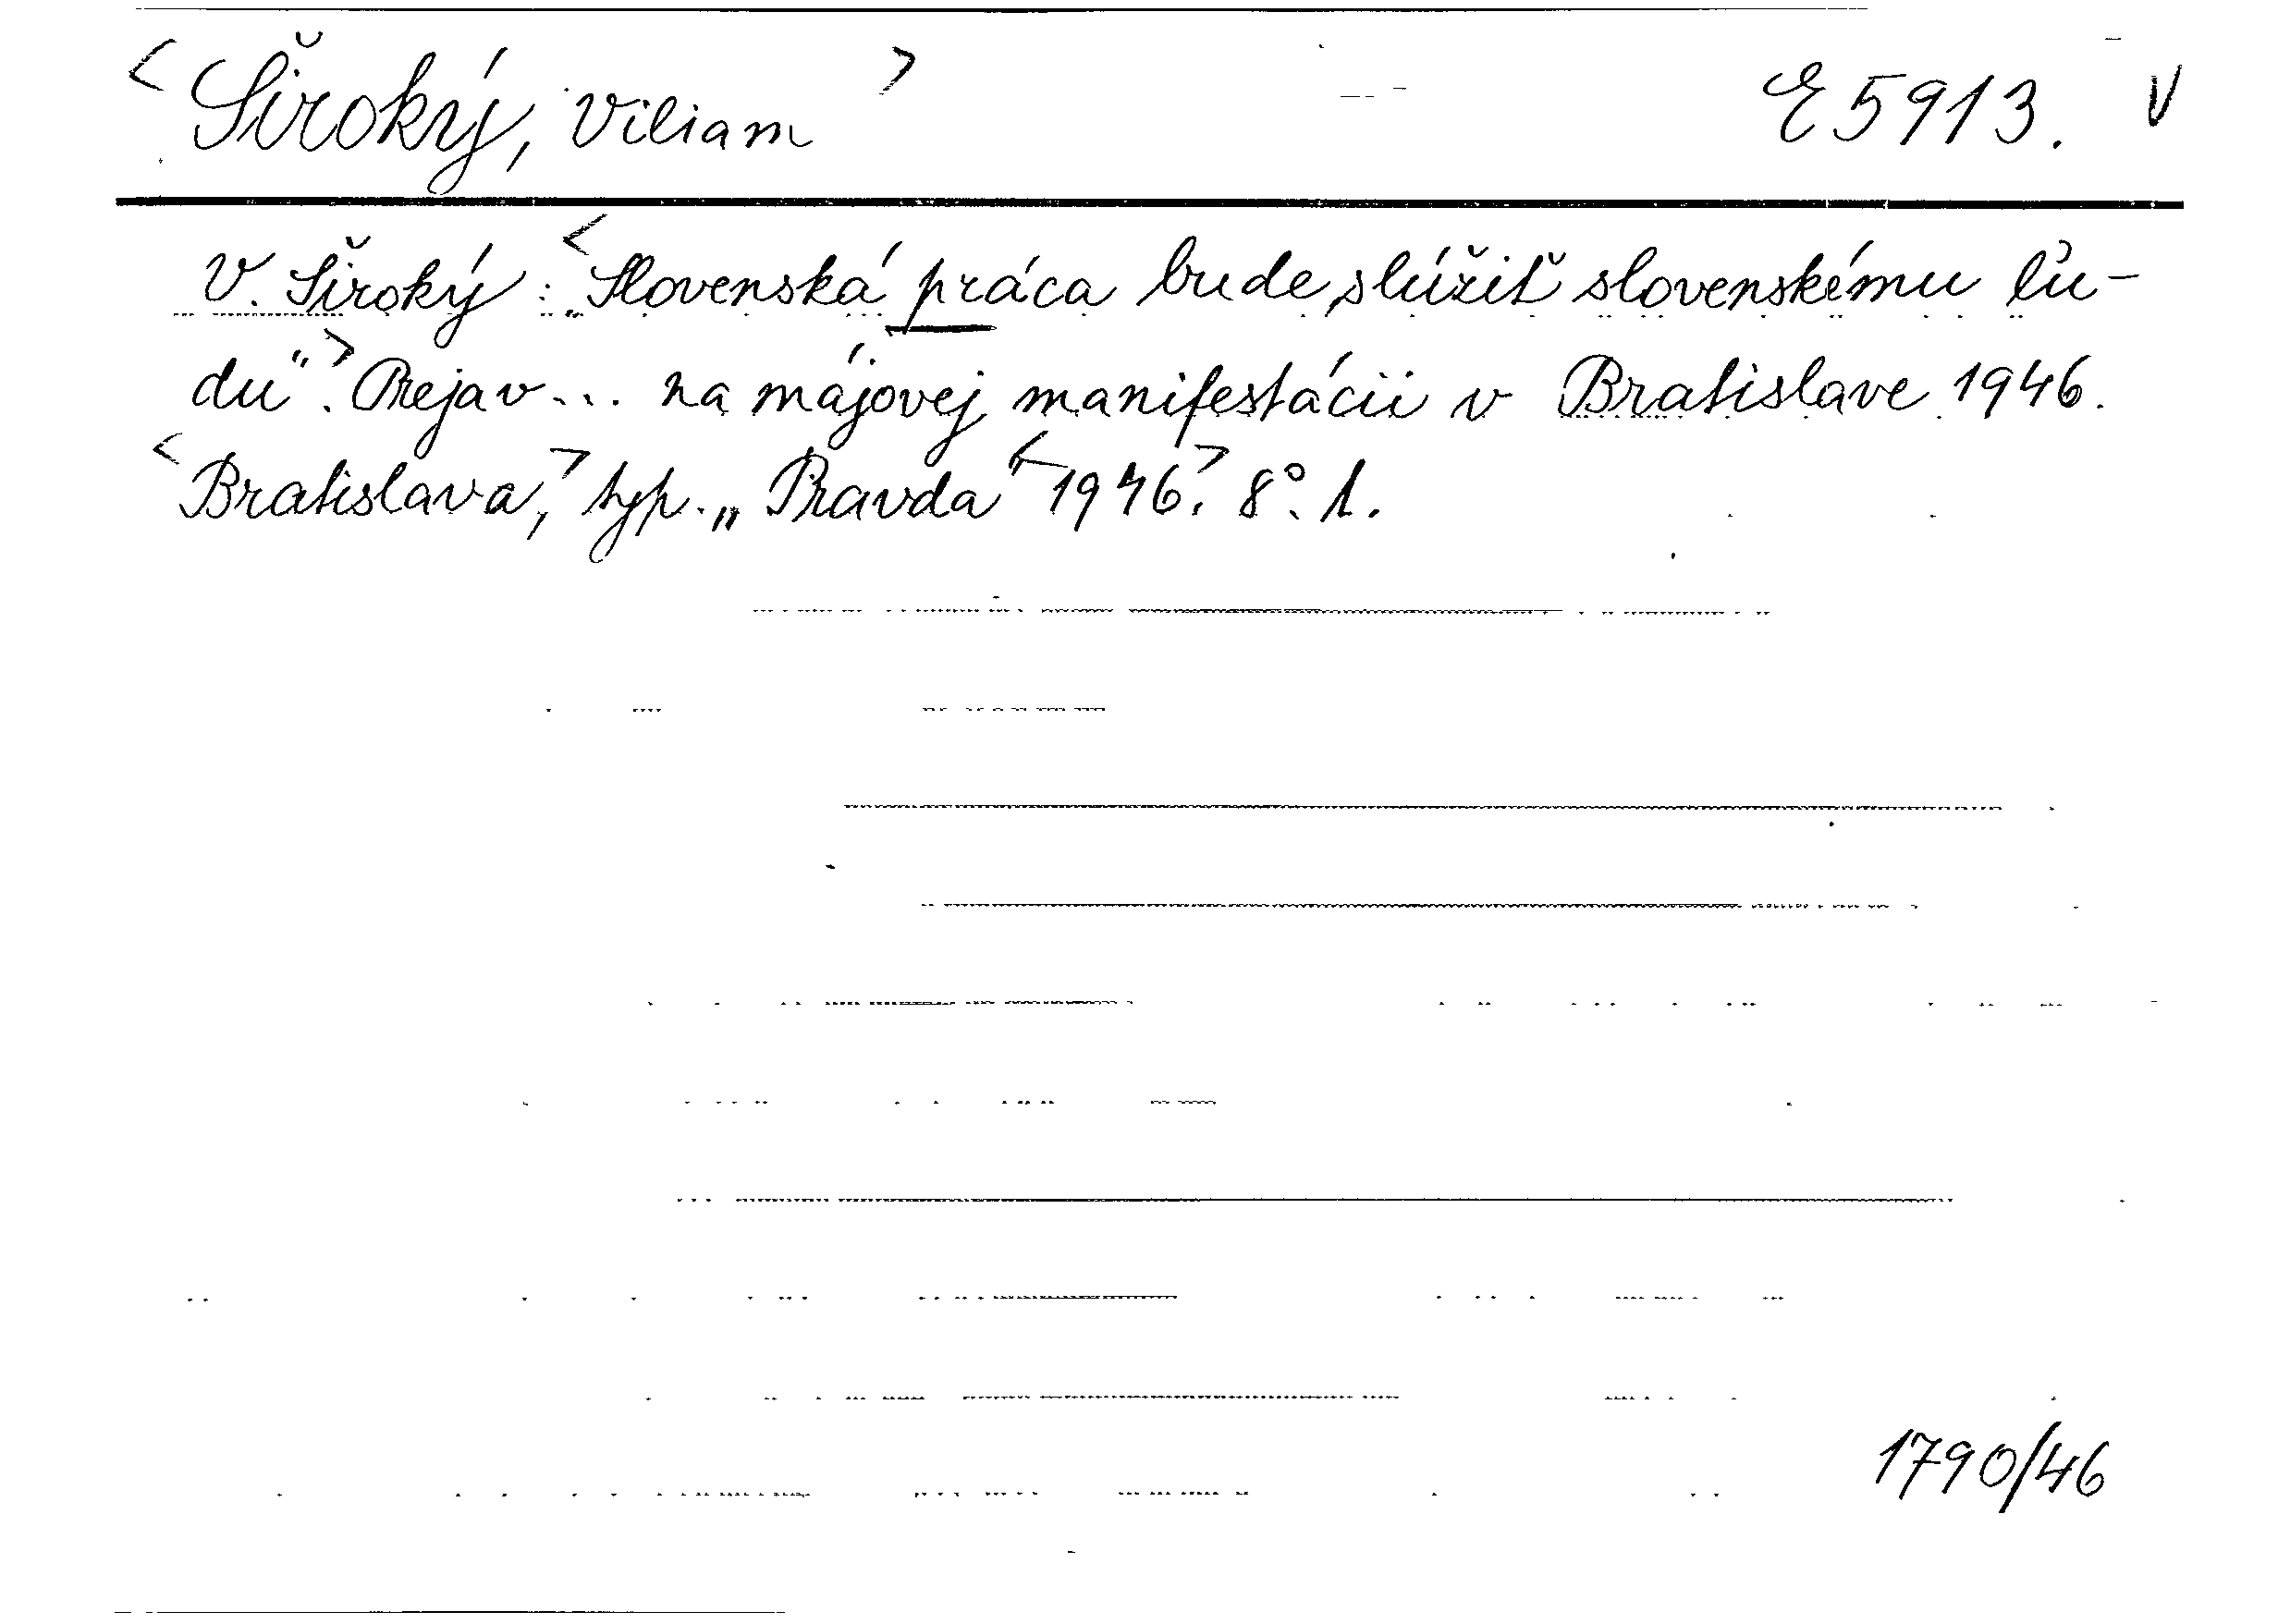 <Široký, Viliam> E 5913. V
V. Široký: <„Slovenská práca bude slúžiť slovenskému ľu-
du“.> Prejav... na májovej manifestácii v Bratislave 1946.
<Bratislava,> typ. „Pravda“ <1946.> 8°. 1.
1790/46